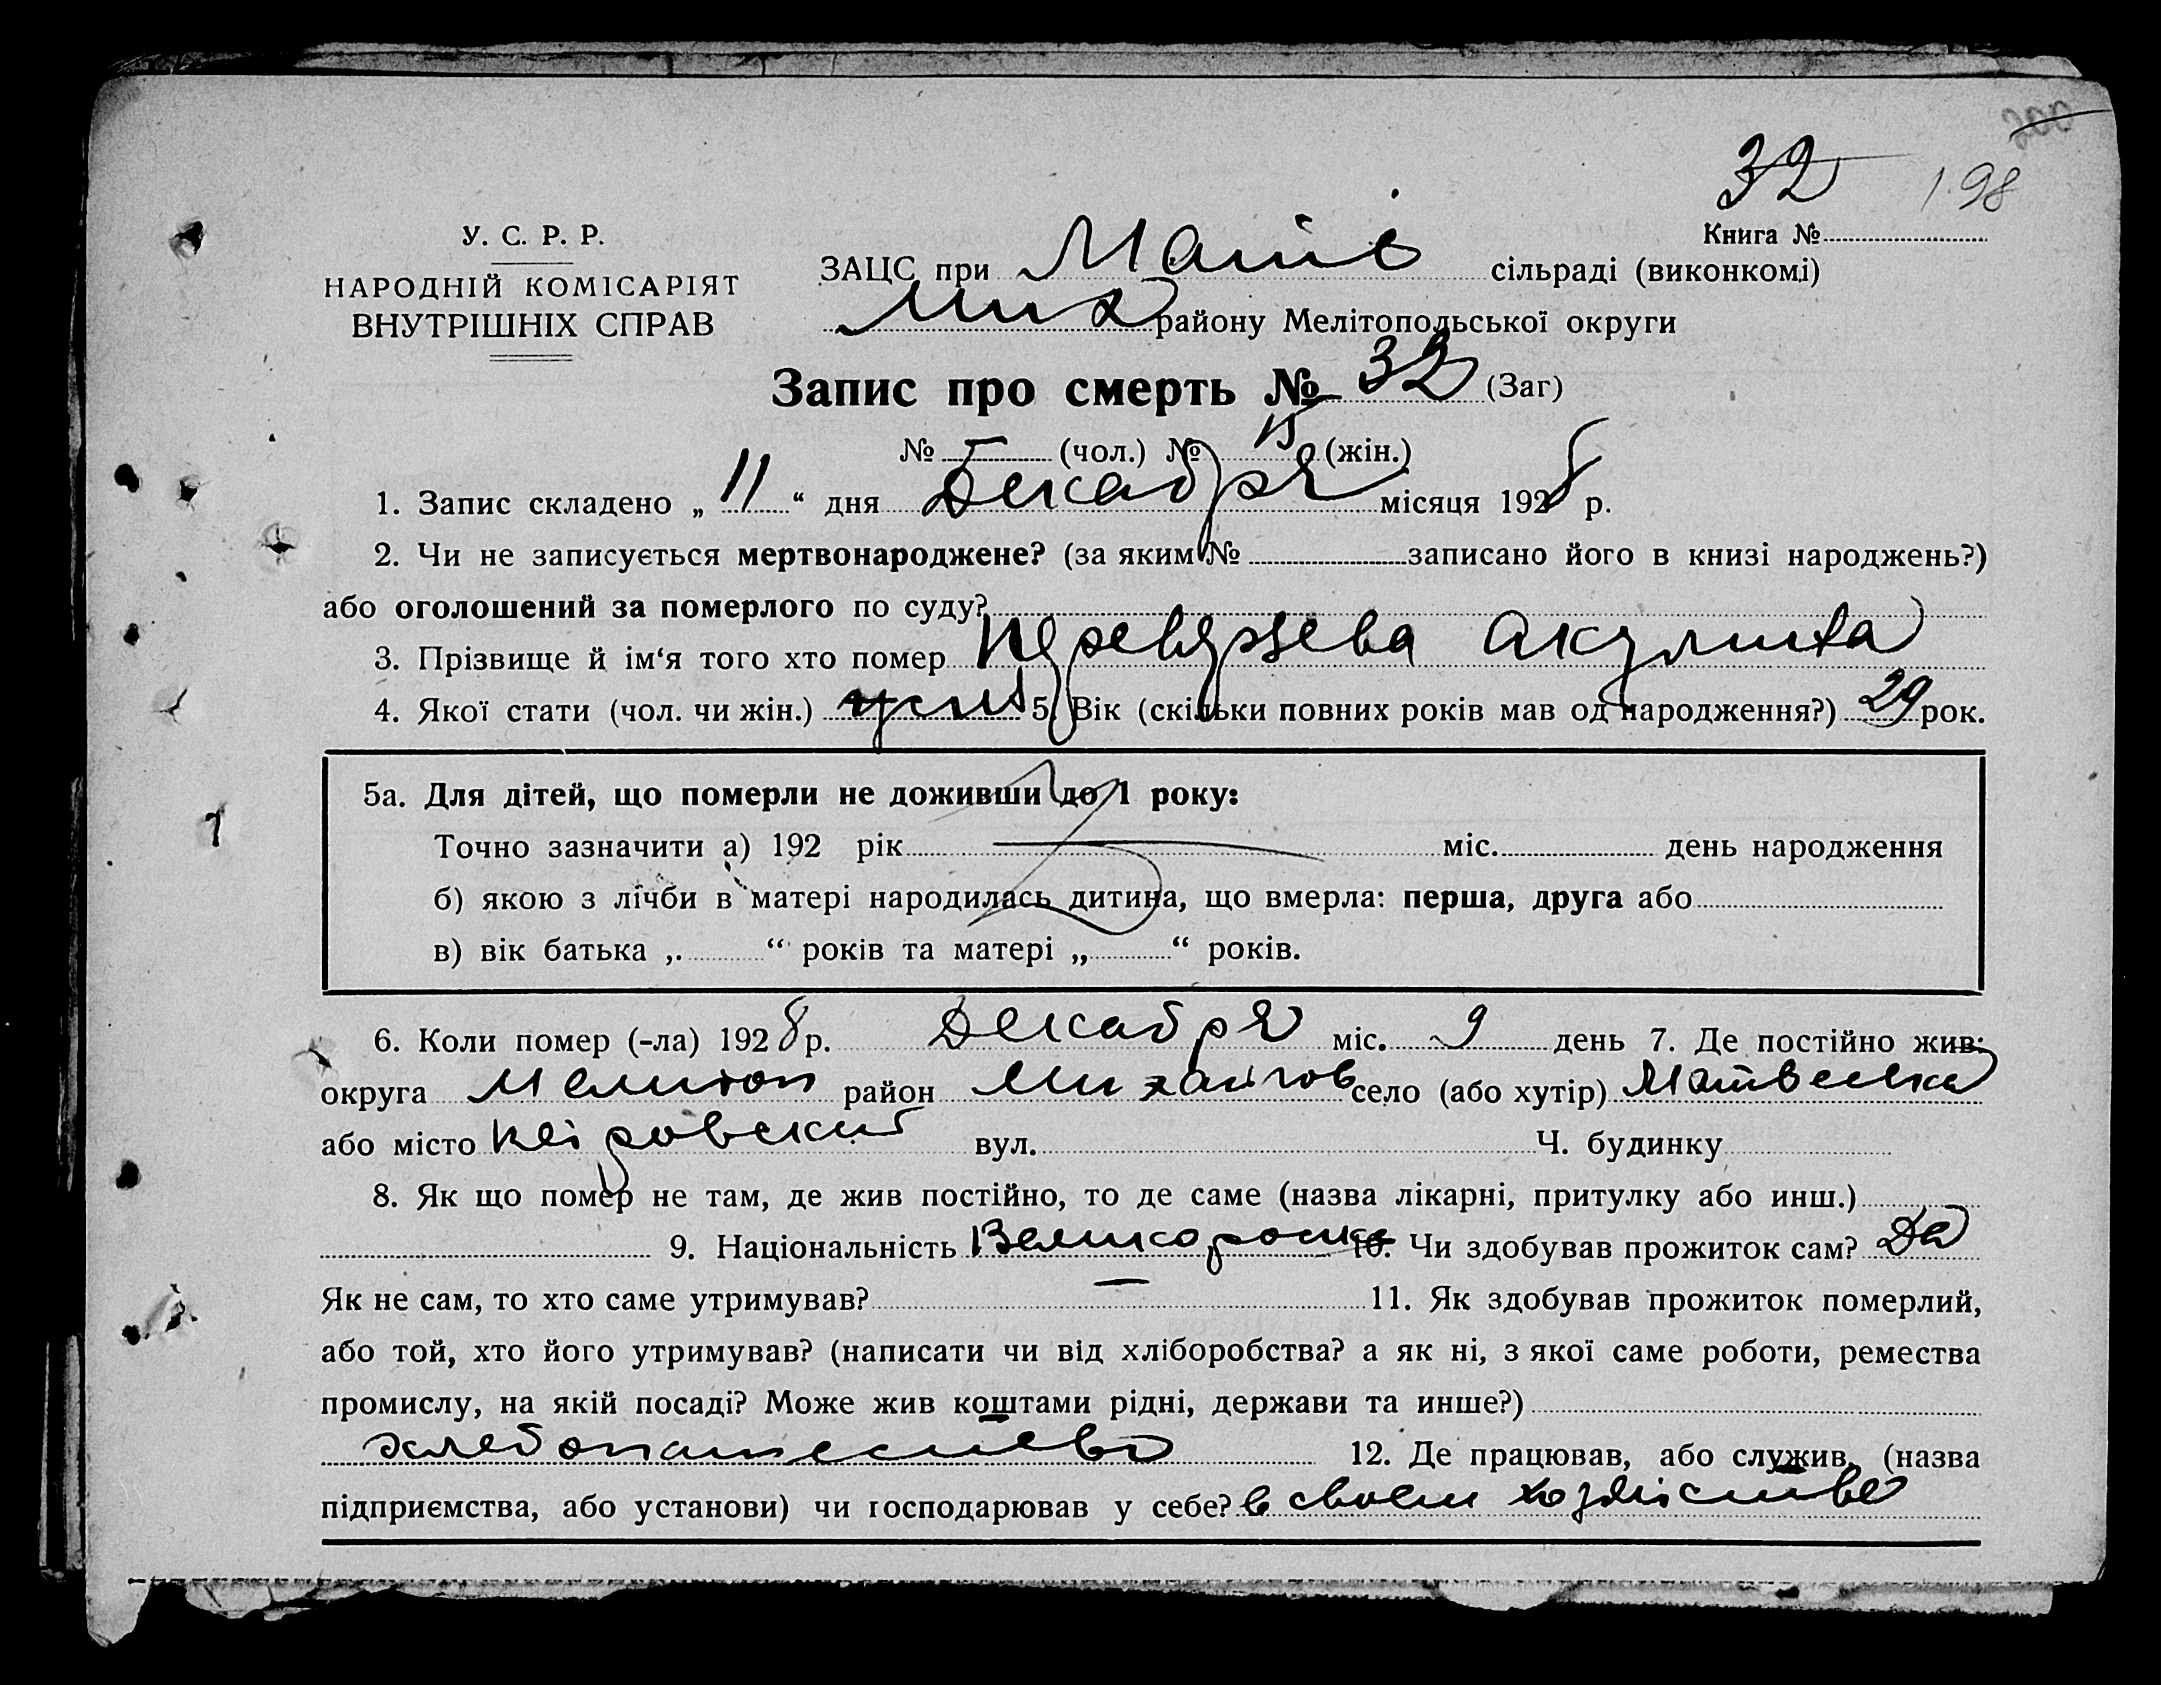 32 198
У. С. Р. Р.
НАРОДНІЙ КОМІСАРІЯТ
ВНУТРІШНІХ СПРАВ
Книга №
ЗАЦС при Матв сільраді (виконкомі)
Мих району Мелітопольської округи
Запис про смерть № 32 (Заг)
№ (чол.) № 15 (жін.)
1. Запис складено „ 11 “ дня Декабря місяця 1928 р.
2. Чи не записується мертвонароджене? (за яким № записано його в книзі народжень?)
або оголошений за померлого по суду?
3. Прізвище й ім‘я того хто помер Акулина
4. Якої стати (чол. чи жін.) жен 5. Вік (скільки повних років мав од народження?) 29 рок.
5а. Для дітей, що померли не доживши до 1 року:
Точно зазначити а) 192 рік міс. день народження
б) якою з лічби в матері народилась дитина, що вмерла: перша, друга або
в) вік батька „ “ років та матері „ “ років.
6. Коли помер (-ла) 1928 р. Декабря міс. 9 день 7. Де постійно жив:
округа Мелитоп район Михайлов село (або хутір) Матвеевка
або місто вул. Ч. будинку
8. Як що помер не там, де жив постійно, то де саме (назва лікарні, притулку або инш.)
9. Національність Великоросика 10. Чи здобував прожиток сам? Да
Як не сам, то хто саме утримував? — 11. Як здобував прожиток померлий,
або той, хто його утримував? (написати чи від хліборобства? а як ні, з якої саме роботи, ремества
промислу, на якій посаді? Може жив коштами рідні, держави та инше?)
хлебопашество 12. Де працював, або служив, (назва
підприємства, або установи) чи господарював у себе? в своем хозяйстве